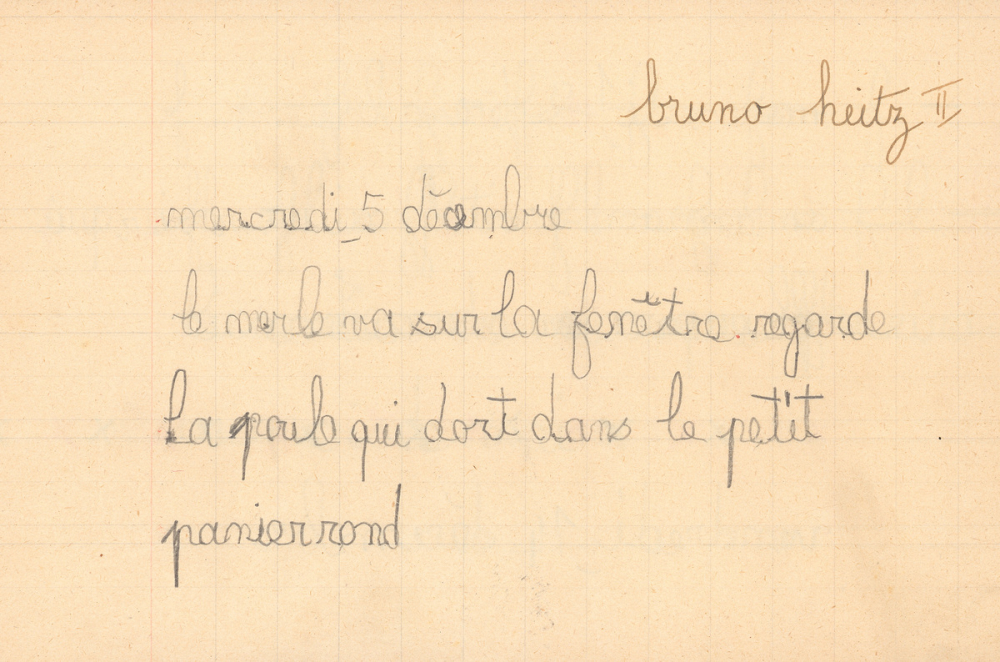 bruno heitz II
mercredi 5 décembre
le merle va sur la fenêtre. regarde
la poule qui dort dans le petit
panier rond